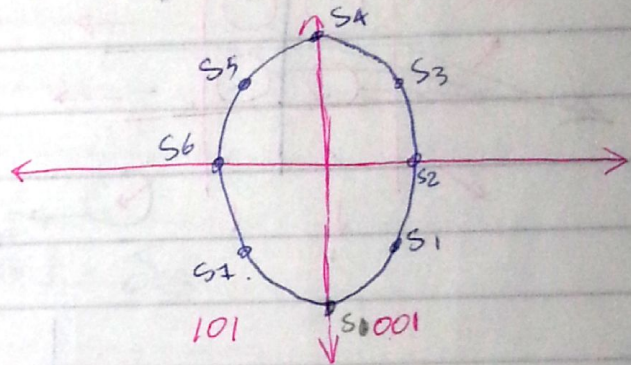 S4
S5
S3
S6
S2
S1
S7.
101
001